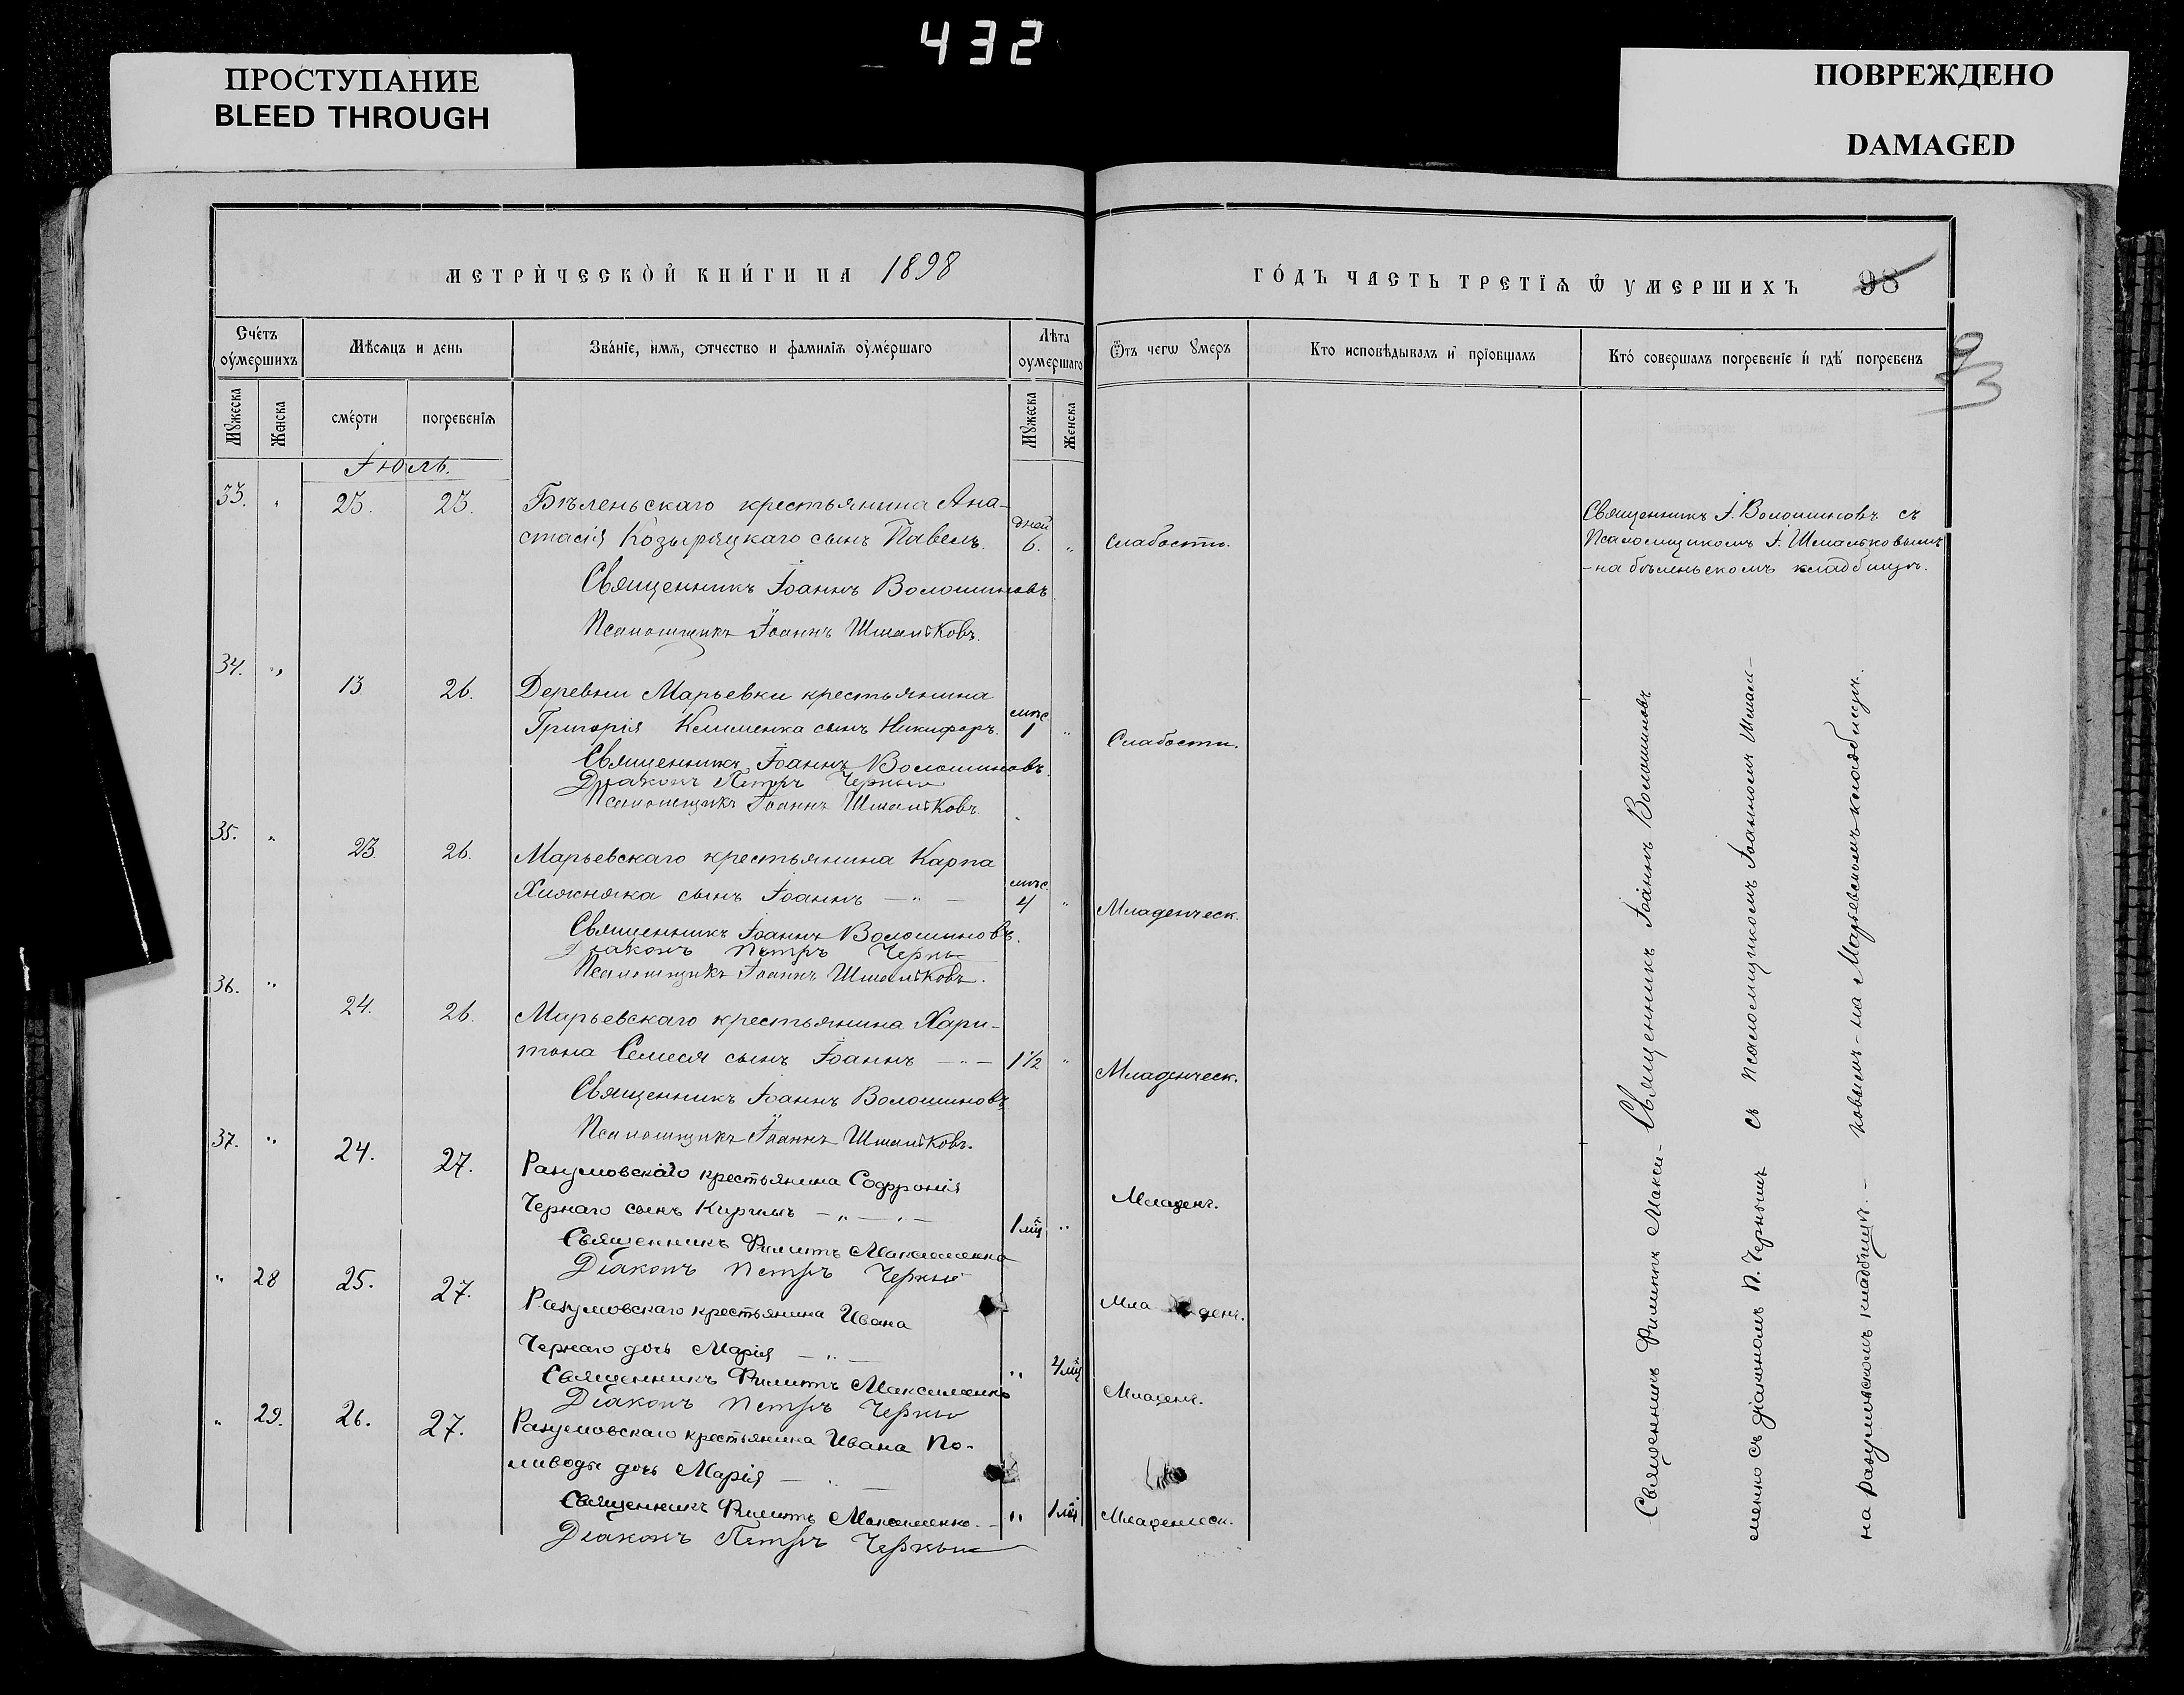 432
ПРОСТУПАНИЕ
BLEED THROUGH
ПОВРЕЖДЕНО
DAMAGED
МЕТРИ́ЧЕСКОЙ КНИ́ГИ НА 1898
ГО́ДЪ ЧАСТЬ ТРЕТІѦ Ѿ УМЕРШИХЪ 98
93
Счетъ оумершихъ
Мѣсяцъ и день
Званіе, имѧ, отчество и фамиліѧ оумершаго
Лѣта оумершаго
Ѿтъ чегѡ умеръ
Кто исповѣдывалъ и пріобщалъ
Кто совершалъ погребеніе и гдѣ погребенъ
Мужеска
Женска
смерти
погребеніѧ
Мужеска
Женска
Іюль.
33. " 23. 23. Бѣленьскаго крестьянина Ана-
стасія Козыряцкаго сынъ Павелъ. дней 6. " Слабости.
Священникъ І. Волошиновъ съ
Псаломщикомъ І. Шмальковымъ
- на бѣленьскомъ кладбищѣ.
Священникъ Іоаннъ Волошиновъ
Псаломщикъ Іоаннъ Шмальковъ.
34. " 13 26. Деревни Марьевки крестьянина
Григорія Клименка сынъ Никифоръ. мѣс. 1 " Слабости.
Священникъ Іоаннъ Волошиновъ.
Діаконъ Петръ Черный
Псаломщикъ Іоаннъ Шмальковъ.
35. " 23 26. Марьевскаго крестьянина Карпа
Хижняка сынъ Іоаннъ — " — мѣс. 4 " Младенческ.
Священникъ Іоаннъ Волошиновъ.
Діаконъ Петръ Черный
Псаломщикъ Іоаннъ Шмальковъ.
36. " 24. 26. Марьевскаго крестьянина Хари-
тона сынъ Іоаннъ — " — 1 1/2 " Младенческ.
Священникъ Іоаннъ Волошиновъ
Псаломщикъ Іоаннъ Шмальковъ.
37. " 24. 27. Разумовскаго крестьянина Софронія
Чернаго сынъ Кириллъ — " — " — 1 мц. " Младенч.
Священникъ Филиппъ Максименко
Діаконъ Петръ Черный
" 28 25. 27. Разумовскаго крестьянина Ивана
Чернаго дочь Марія — " — " 4 мц Младенч.
Священникъ Филиппъ Максименко
Діаконъ Петръ Черный
Младенч.
" 29. 26. 27. Разумовскаго крестьянина Ивана По-
ливоды дочь Марія — " —
Священникъ Филиппъ Максименко. — " 1 мц Младенческ.
Діаконъ Петръ Черный
Священникъ Іоаннъ Волошиновъ
съ псаломщикомъ Іоанномъ Шмаль-
ковымъ - на Марьевскомъ кладбищѣ.
Священникъ Филиппъ Макси-
менко съ діакономъ П. Чернымъ
на Разумовскомъ кладбищѣ. —